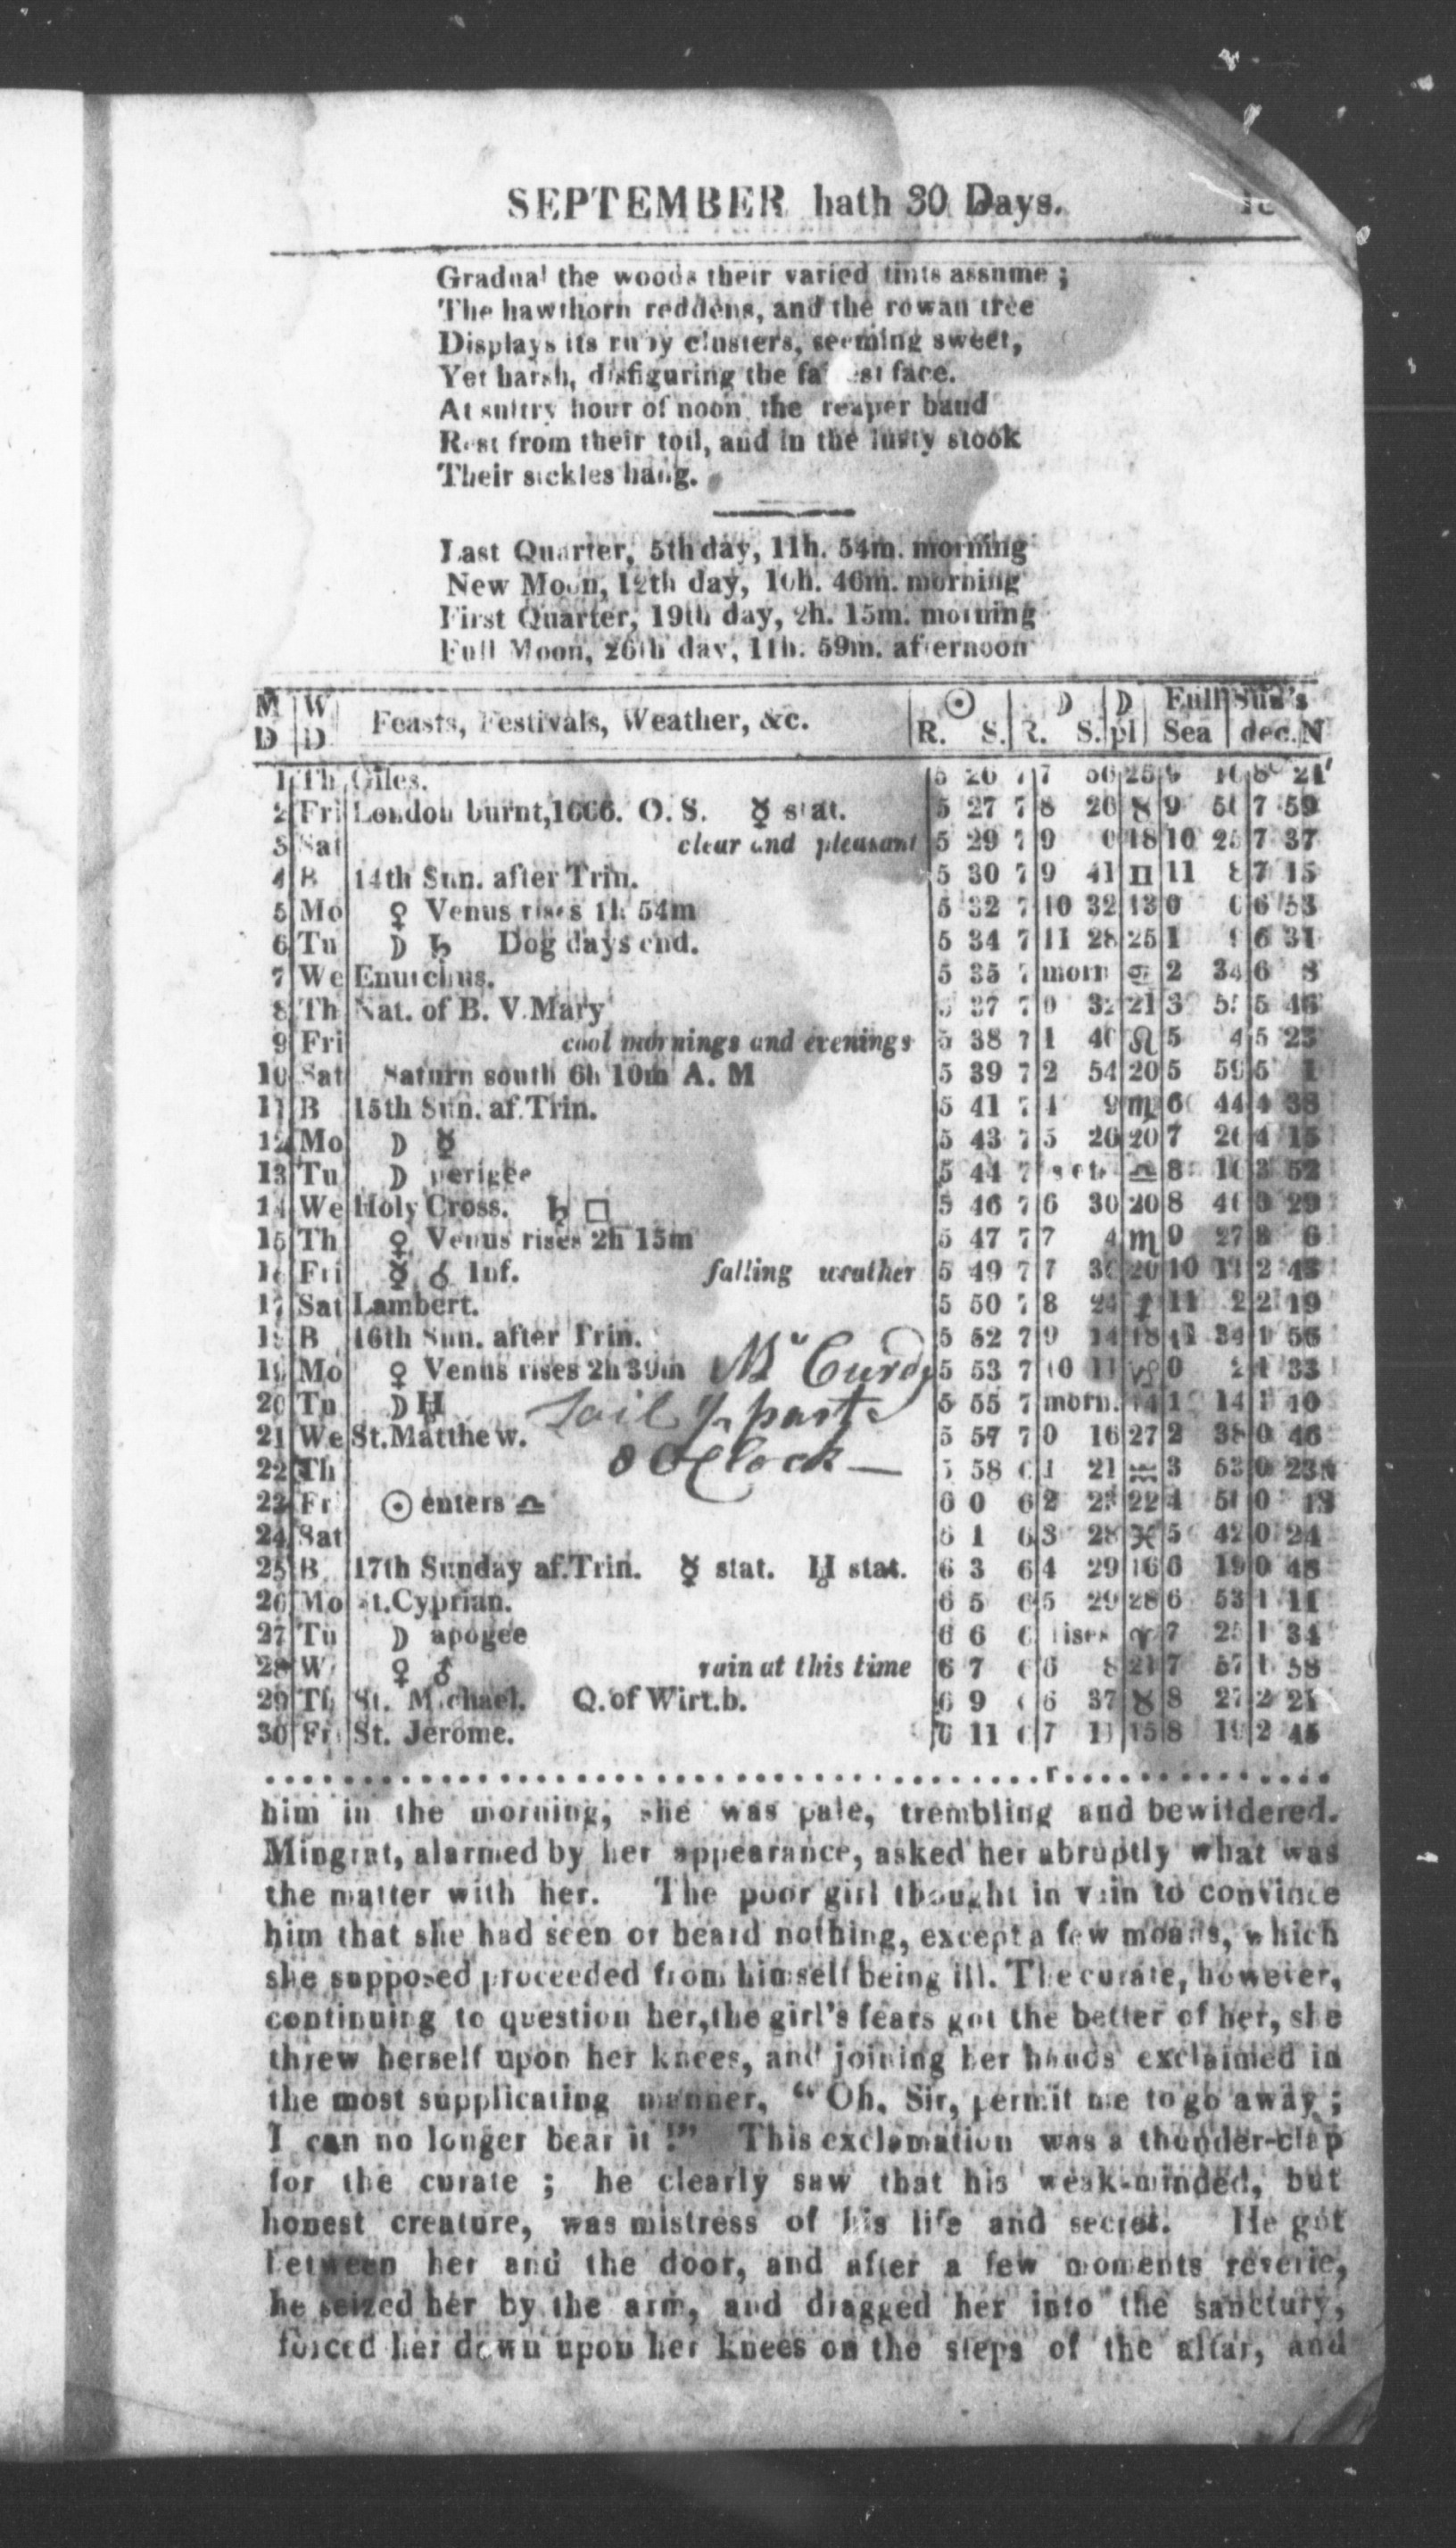 SEPTEMBER hath 30 Days.
Gradual the woods their varied tints assume ;
The hawthorn reddens, and the rowan tree
Displays its ruby clusters, seeming sweet,
Yet harsh, disfiguring the face.
At sultry hour of noon the reaper band
Rest from their toil, and in the lusty stook
Their sickles hang.
Last Quarter, 5th day, 11h. 54m. morning
New Moon, 12th day, 10h. 46m. morning
First Quarter, 19th day, 2h. 15m. morning
Full Moon, 26th day, 11h. 59m. afternoon
M D W D Feasts, Festivals, Weather, &c. ☉ R. S. ☽ R. S. ☽ pl Full Sea Sun's dec. N
1 Th Giles. 5 26 7 7 56 25 9 8 21
2 Fri London burnt, 1666. O. S. ☿ stat. 5 27 7 8 26 ♉ 9 7 59
3 Sat clear and pleasant 5 29 7 9 0 18 10 25 7 37
4 B 14th Sun. after Trin. 5 30 7 9 41 ♊ 11 8 7 15
5 Mo ♀ Venus rises 1h 54m 5 32 7 10 32 13 0 6 53
6 Tu ☽ ♄ Dog days end. 5 34 7 11 28 25 1 6 31
7 We Enurchus. 5 35 7 morn ♋ 2 34 6 8
8 Th Nat. of B. V. Mary 5 37 7 0 32 21 3 5 46
9 Fri cool mornings and evenings 5 38 7 1 40 ♌ 5 4 5 23
10 Sat Saturn south 6h 10m A. M 5 39 7 2 54 20 5 59 5 1
11 B 15th Sun. af. Trin. 5 41 7 4 9 ♍ 6 44 4 38
12 Mo ☽ ☿ 5 43 7 5 26 20 7 26 4 15
13 Tu ☽ perigee 5 44 7 sets ♎ 8 10 3 52
14 We Holy Cross. ♄ □ 5 46 7 6 30 20 8 29
15 Th ♀ Venus rises 2h 15m 5 47 7 7 4 ♏ 9 27 6
16 Fri ☿ ☌ Inf. falling weather 5 49 7 7 20 10 2 43
17 Sat Lambert. 5 50 7 8 24 ♐ 11 2 2 19
18 B 16th Sun. after Trin. 5 52 7 9 14 18 34 1 56
19 Mo ♀ Venus rises 2h 39m Mc Curdy 5 53 7 10 11 ♑ 0 2 1 33
20 Tu ☽ H Sail ½ past 5 55 7 morn. 14 1 14 1 10
21 We St. Matthew. 5 57 7 0 16 27 2 38 0 46
22 Th 8 OClock — 5 58 6 1 21 ♒ 3 53 0 23
23 Fr ☉ enters ♎ 6 0 6 2 22 4 0
24 Sat 6 1 6 3 28 ♓ 5 42 0 24
25 B 17th Sunday af. Trin. ☿ stat. ♅ stat. 6 3 6 4 29 16 6 19 0 48
26 Mo St. Cyprian. 6 5 6 5 29 28 6 53 1 11
27 Tu ☽ apogee 6 6 6 rises ♈ 7 25 1 34
28 W ♀ ♂ rain at this time 6 7 6 6 8 21 7 57 1 58
29 Th St. Michael. Q. of Wirt. b. 6 9 6 6 37 ♉ 8 27 2 21
30 Fri St. Jerome. 6 11 6 7 11 15 8 2 45
him in the morning, she was pale, trembling and bewildered.
Mingrat, alarmed by her appearance, asked her abruptly what was
the matter with her. The poor girl thought in vain to convince
him that she had seen or heard nothing, except a few moans, which
she supposed proceeded from himself being ill. The curate, however,
continuing to question her, the girl's fears got the better of her, she
threw herself upon her knees, and joining her hands exclaimed in
the most supplicating manner, “ Oh, Sir, permit me to go away ;
I can no longer bear it !” This exclamation was a thunder-clap
for the curate ; he clearly saw that his weak-minded, but
honest creature, was mistress of his life and secret. He got
between her and the door, and after a few moments reverie,
he seized her by the arm, and dragged her into the sanctury,
forced her down upon her knees on the steps of the altar, and